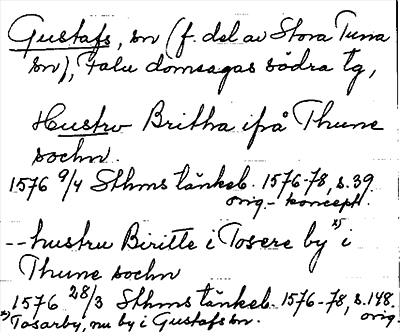 Gustafs, sn (f. del av Stora Tuna
sn), Falu domsagas södra tg,
Hustrv Britha ifrå Thune
sochn.
1576 9/4 Sthms tänkeb. 1576-78, s. 39
orig.- koncept.
-- hustru Biritte i Tosere by x) i
Thune sochn
1576 28/3 Sthms tänkeb. 1576-78, s. 148.
orig.
x) Tosarby, nu by i Gustafs sn.